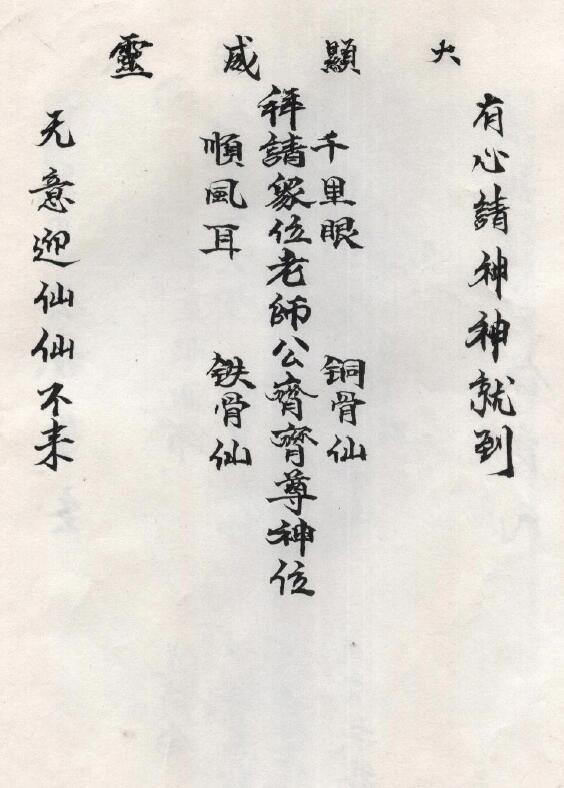 火顯威靈
有心請神神就到
千里眼
銅骨仙
拜請眾位老師公齊齊尊神位
順風耳
鉄骨仙
无意迎仙仙不来